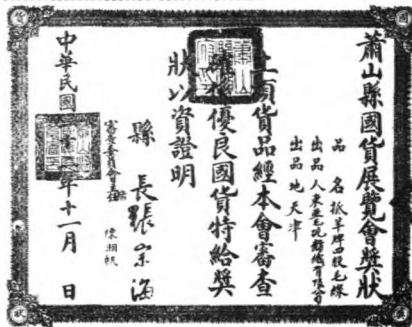 蕭山縣國貨展覽會獎狀
品名抵羊牌四股毛線
出品人東亞毛呢紡織有限公司
出品地天津
上項貨品經本會審查
優良國貨特給獎
狀以資證明
縣長張宗海
審查委員會主任
中華民國
年十一月 日